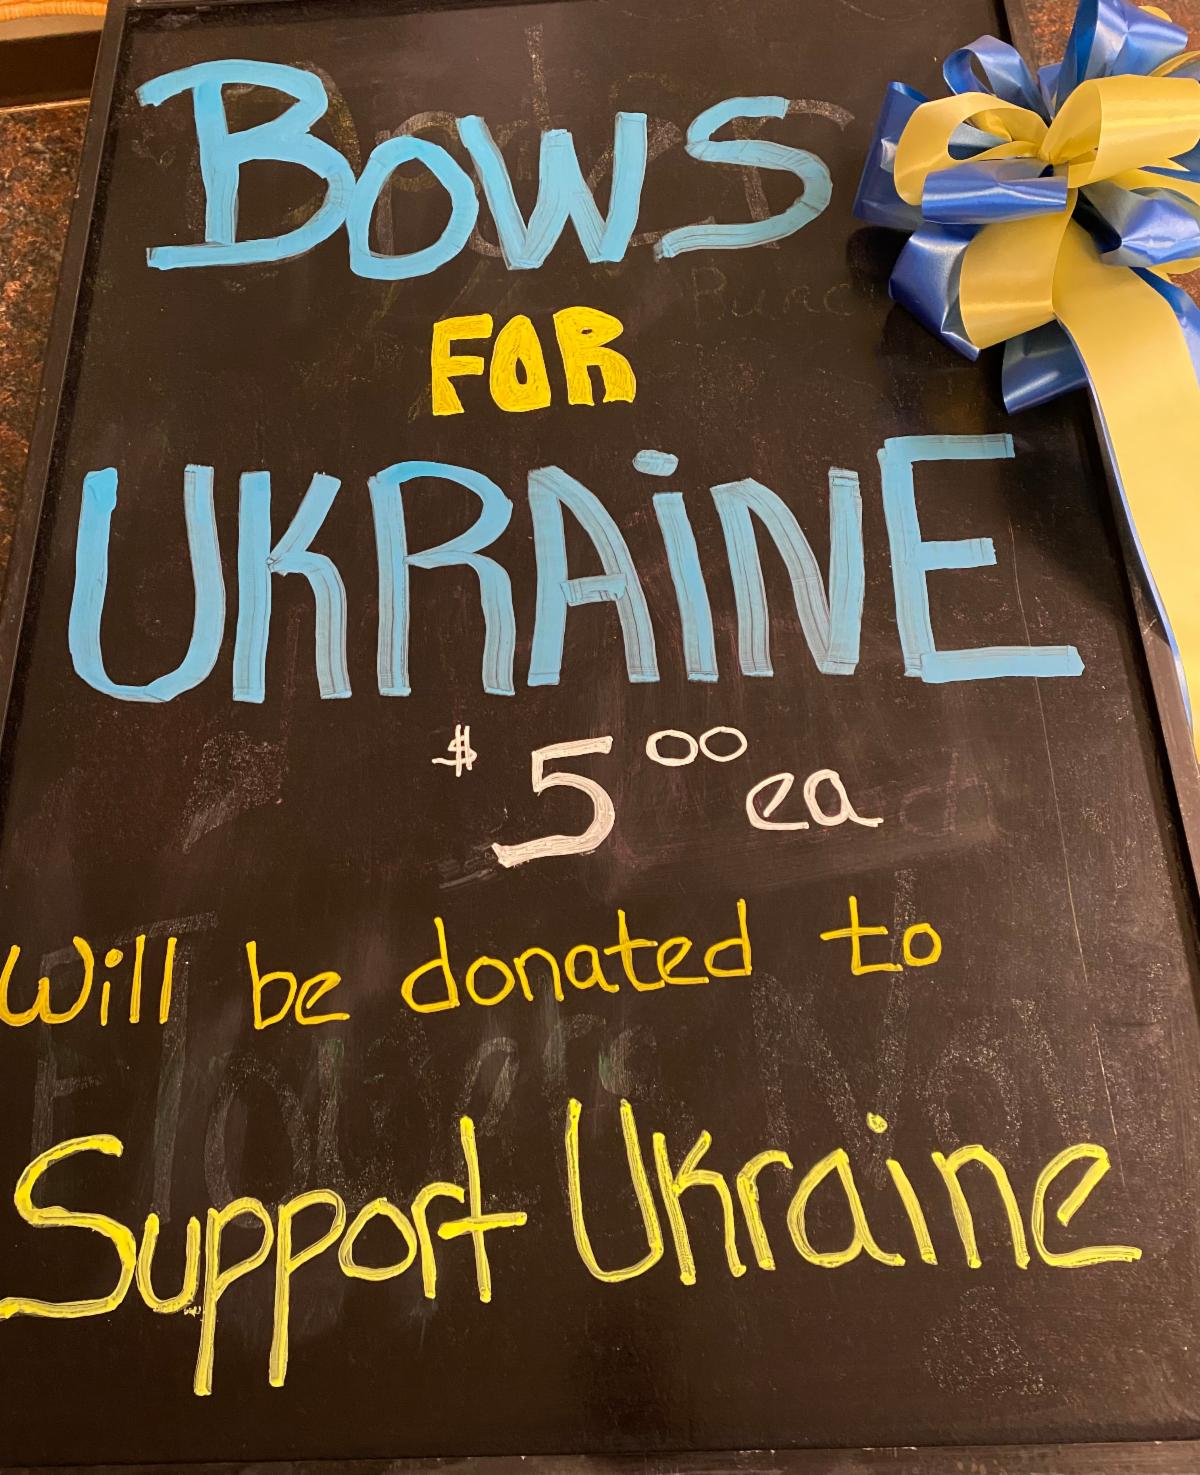 BOWS
FOR
UKRAiNE
$5.00 ea
Will be donated to
Support Ukraine